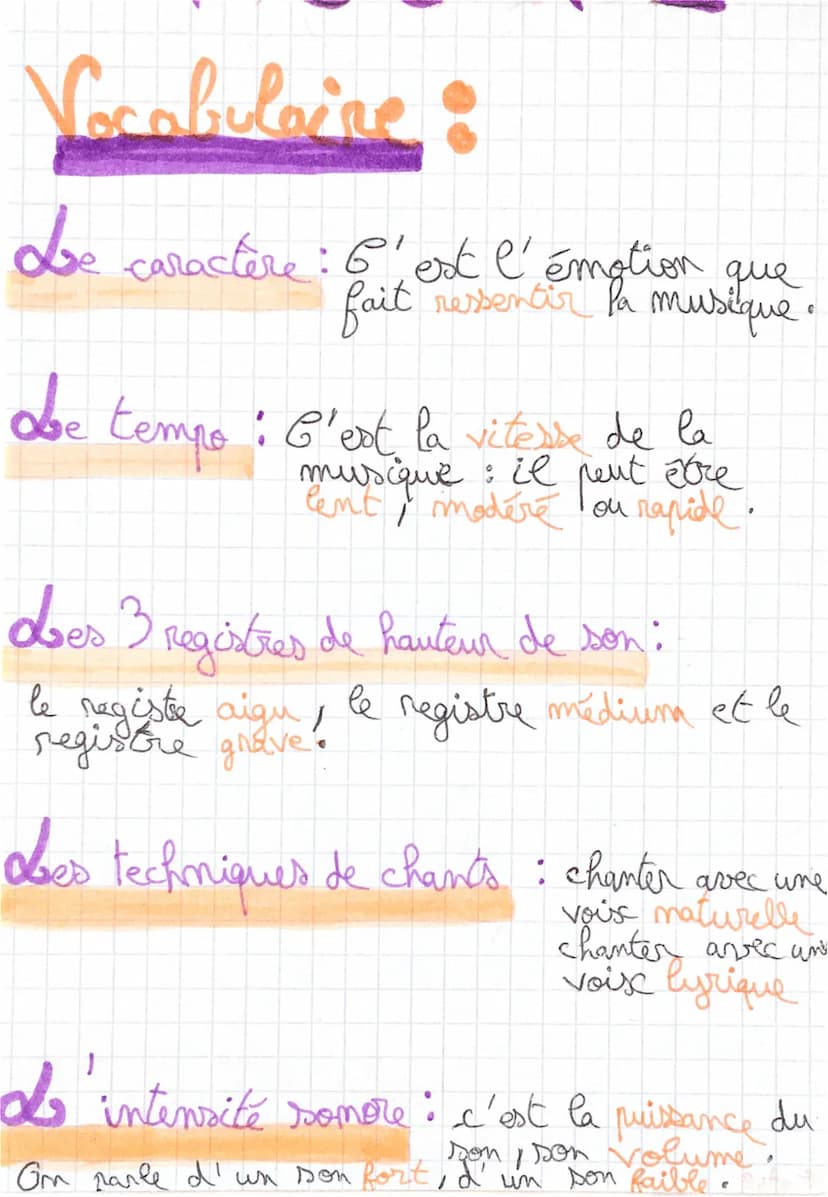 Vocabulaire :
Le caractère : C'est l'émotion que
fait ressentir la musique.
Le tempo : C'est la vitesse de la
musique : il peut être
lent, modéré ou rapide.
Les 3 registres de hauteur de son :
le registre aigu, le registre médium et le
registre grave.
Les techniques de chants : chanter avec une
voix naturelle
chanter avec une
voix lyrique
L'intensité sonore : c'est la puissance du
son, son volume.
On parle d'un son fort, d'un son faible.